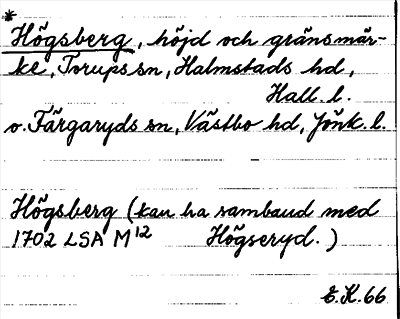 *
Högsberg, höjd och gränsmär-
ke, Torups sn, Halmstads hd,
Hall. l.
o. Färgaryds sn, Västbo hd, Jönk. l.
Högsberg (kan ha samband med
1702 LSA M12 Högseryd.)
E.K. 66